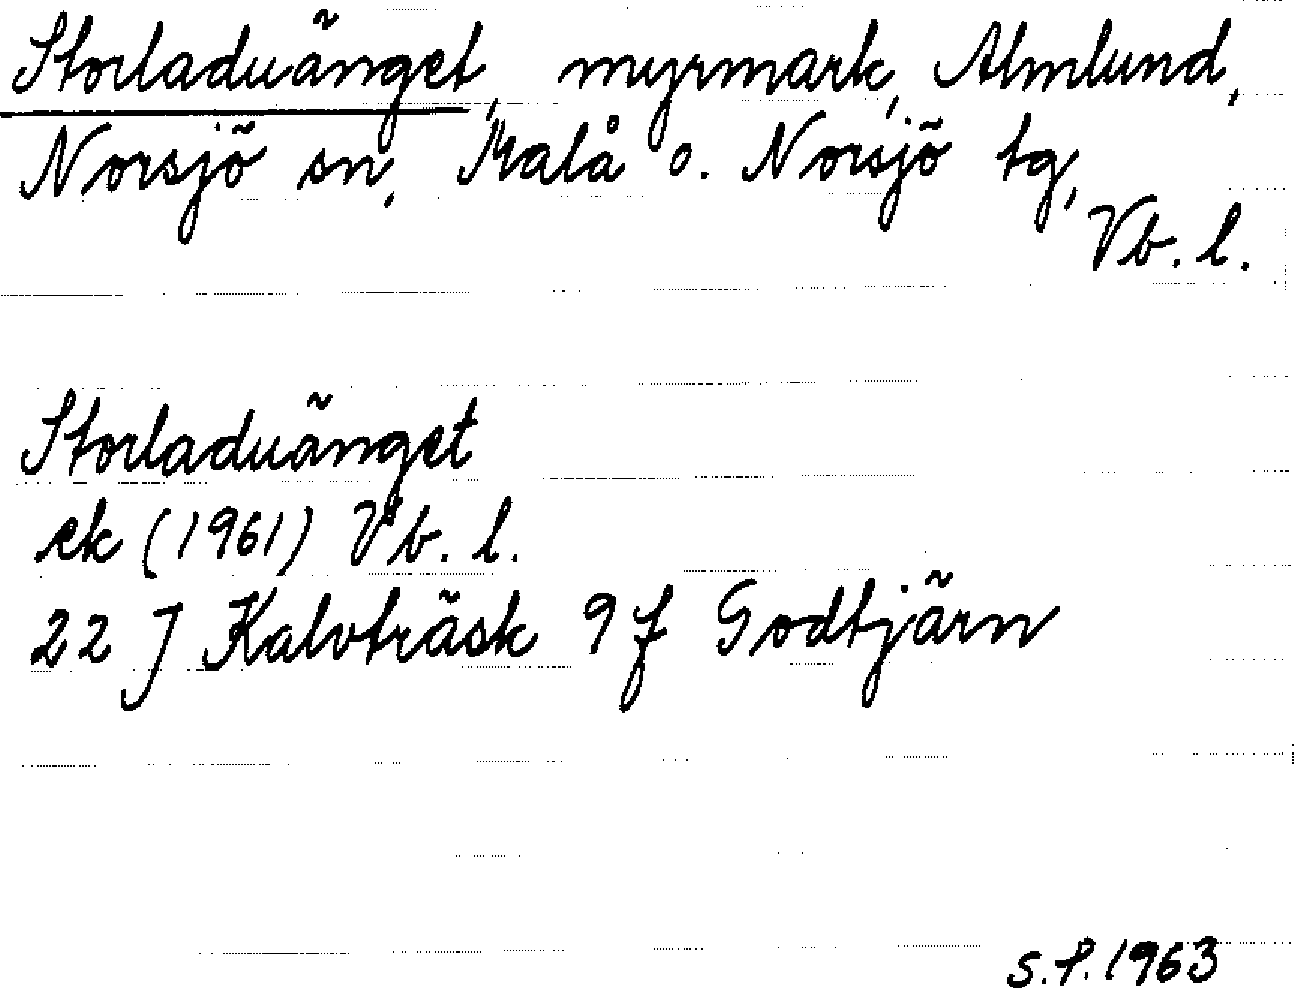 Storladuänget, myrmark, Almlund,
Norsjö sn, Malå o. Norsjö tg,
Vb. l.
Storladuänget
ek (1961) Vb. l.
22 J Kalvträsk 9 f Godtjärn
S.P. 1963